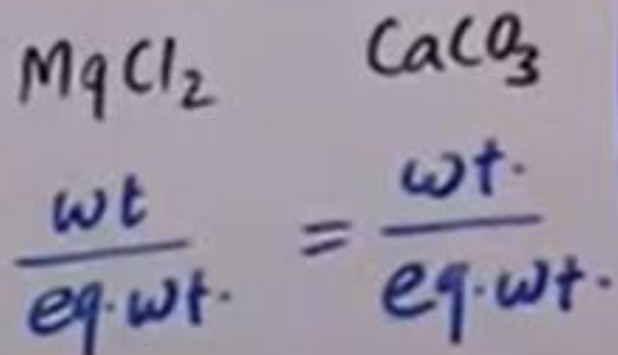 MgCl₂ CaCO₃
wt = wt.
eq.wt. eq.wt.